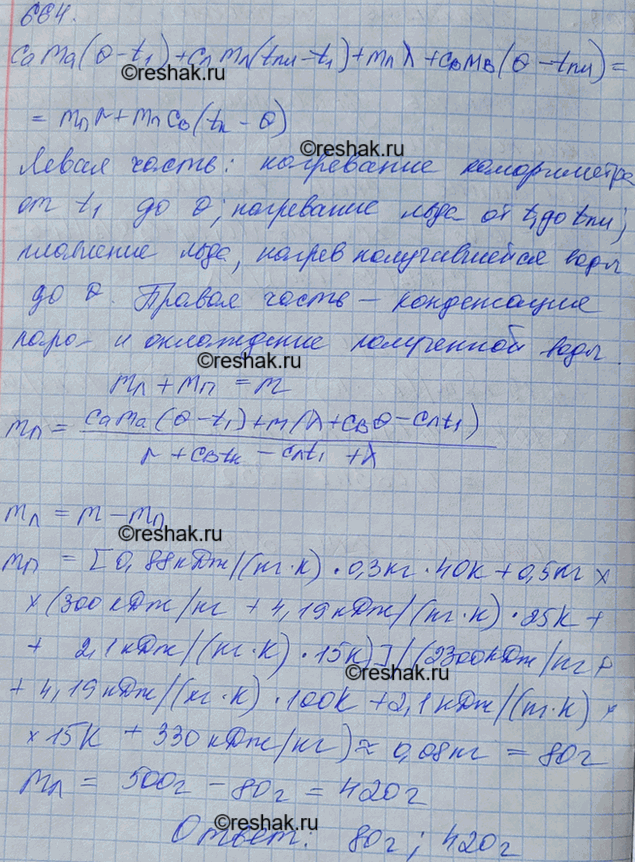 664.
cама(θ-t₁)+cлmл(tпл-t₁)+mлλ+cвмв(θ-tпл)=
©reshak.ru
= mпr+mпcв(tк-θ)
©reshak.ru
Левая часть: нагревание калориметра
от t₁ до θ; нагревание льда от t₁ до tпл;
плавление льда, нагрев получившейся воды
до θ. Правая часть – конденсация
пара и охлаждение полученной воды.
©reshak.ru
mл+mп=m
mп = cама(θ-t₁)+m(λ+cвθ-cлt₁)
r+cвtк-cлt₁+λ
mл = m-mп
©reshak.ru
mп = [0,88кДж/(кг·К)·0,3кг·40К+0,5кг×
×(300кДж/кг+4,19кДж/(кг·К)·25К+
+2,1кДж/(кг·К)·15К)]/(2300кДж/кг+
©reshak.ru
+4,19кДж/(кг·К)·100К+2,1кДж/(кг·К)×
×15К+330кДж/кг)≈0,08кг=80г
mл = 500г-80г=420г
©reshak.ru
Ответ: 80г; 420г